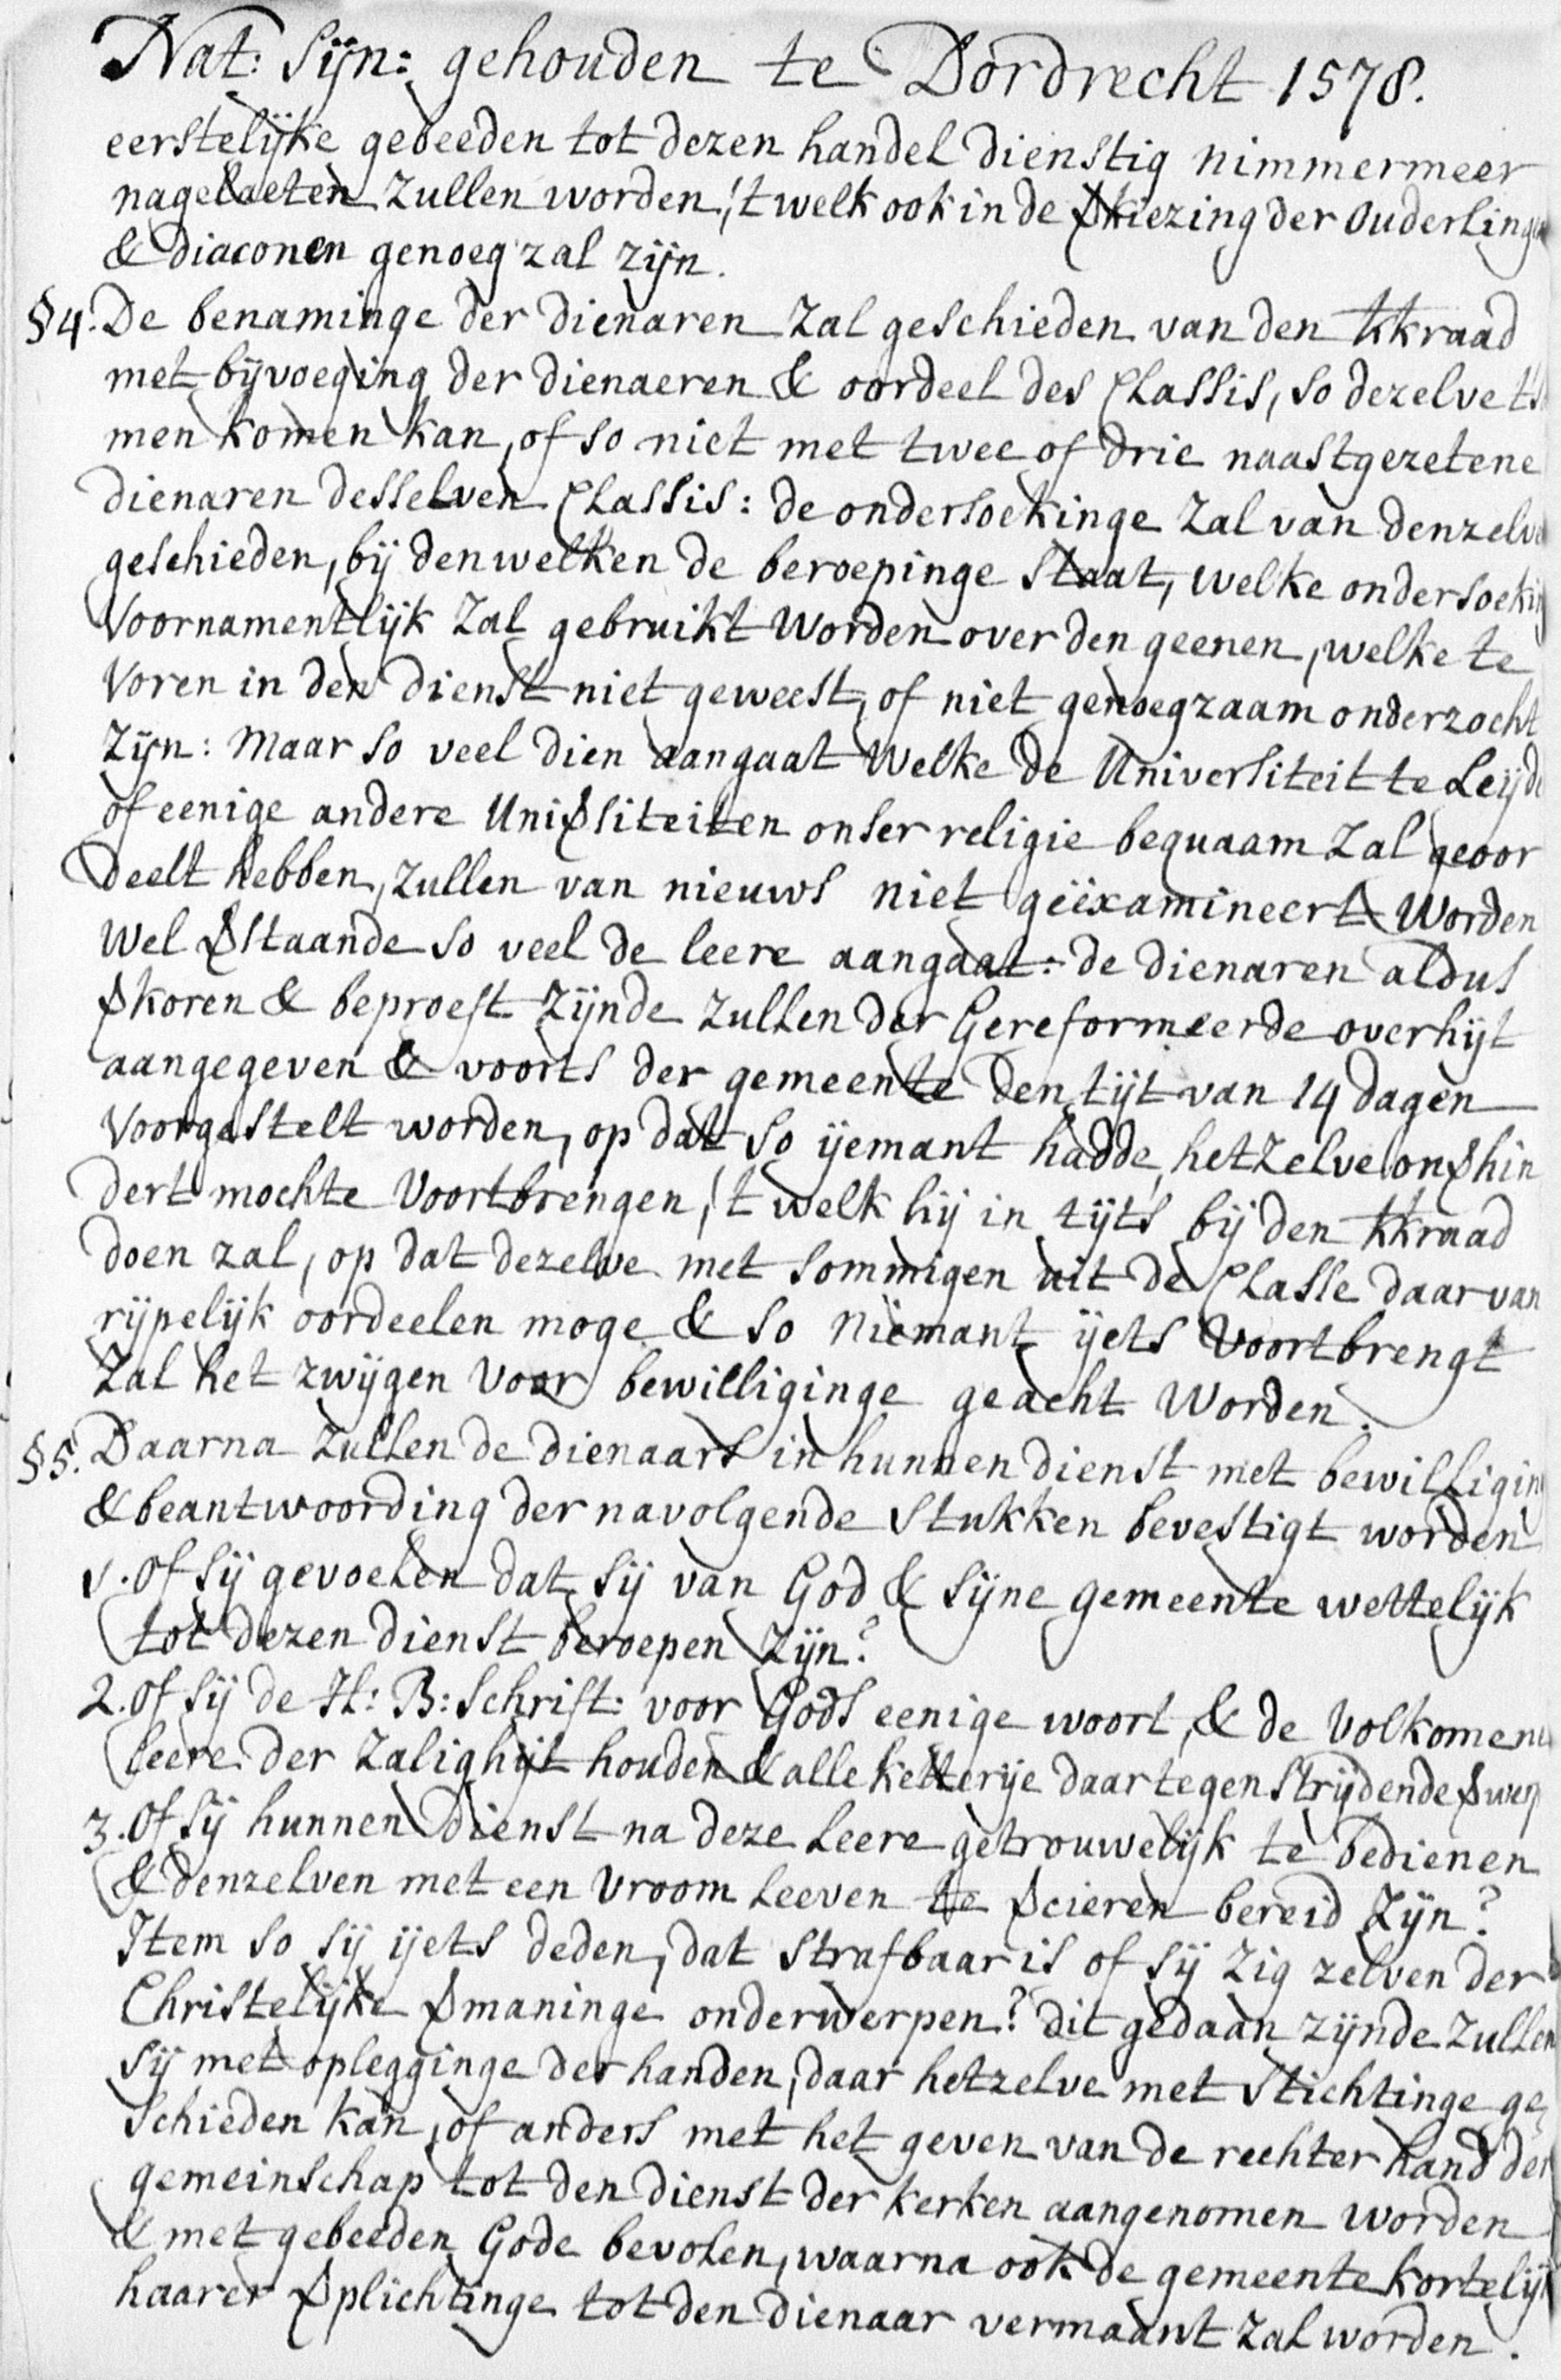 Nat: Sijn: gehouden te Dordrecht 1578.
eerstelijke gebeeden tot dezen handel dienstig nimmermeer
nagelaeten zullen worden, 't welk ook in de ꝟkiezing der Ouderlingen
& diaconen genoeg zal zijn.
§4. De benaminge der dienaren zal geschieden van den kkraad
met bijvoeging der dienaeren & oordeel des Classis, so dezelve ts
men komen kan, of so niet met twee of drie naastgezetene
dienaren desselven Classis: de ondersoekinge zal van denzelve
geschieden, bij denwelken de beroepinge staat, welke ondersoeking
voornamentlijk zal gebruikt worden over den geenen, welke te
voren in den dienst niet geweest, of niet genoegzaam onderzocht
zijn: Maar so veel dien aangaat welke de Universiteit te Leijde
of eenige andere Uniꝟsiteiten onser religie bequaam zal geoor
deelt hebben, zullen van nieuws niet geëxamineert worden
wel ꝟstaande so veel de leere aangaat: de dienaren aldus
ꝟkoren & beproeft zijnde zullen der Gereformeerde overhijt
aangegeven & voorts der gemeente den tijt van 14 dagen
voorgestelt worden, op dat so ijemant hadde, hetzelve onꝟhin
dert mochte voortbrengen, 't welk hij in tijts bij den kkraad
doen zal, op dat dezelve met sommigen uit de Classe daarvan
rijpelijk oordeelen moge & so niemant ijets voortbrengt
zal het zwijgen voor bewilliginge geacht worden.
§5. Daarna zullen de dienaars in hunnen dienst met bewilliging
& beantwoording der navolgende stukken bevestigt worden
1. Of sij gevoelen dat sij van God & sijne gemeente wettelijk
tot dezen dienst beroepen zijn?
2. Of sij de H: B: Schrift: voor Gods eenige woort, & de volkomene
leere der zalighijt houden & alle ketterije daartegen strijdende ꝟwerp
3. Of sij hunnen dienst na deze leere getrouwelijk te bedienen
& denzelven met een vroom leeven te ꝟcieren bereid zijn?
Item so sij ijets deden, dat strafbaar is of sij zig zelven der
Christelijke ꝟmaninge onderwerpen? dit gedaan zijnde zullen
sij met oplegginge der handen, daar hetzelve met stichtinge ge
schieden kan, of anders met het geven van de rechter hand der
gemeinschap tot den dienst der kerken aangenomen worden
& met gebeeden Gode bevolen, waarna ook de gemeente kortelijk
haarer ꝟplichtinge tot den dienaar vermaant zal worden.